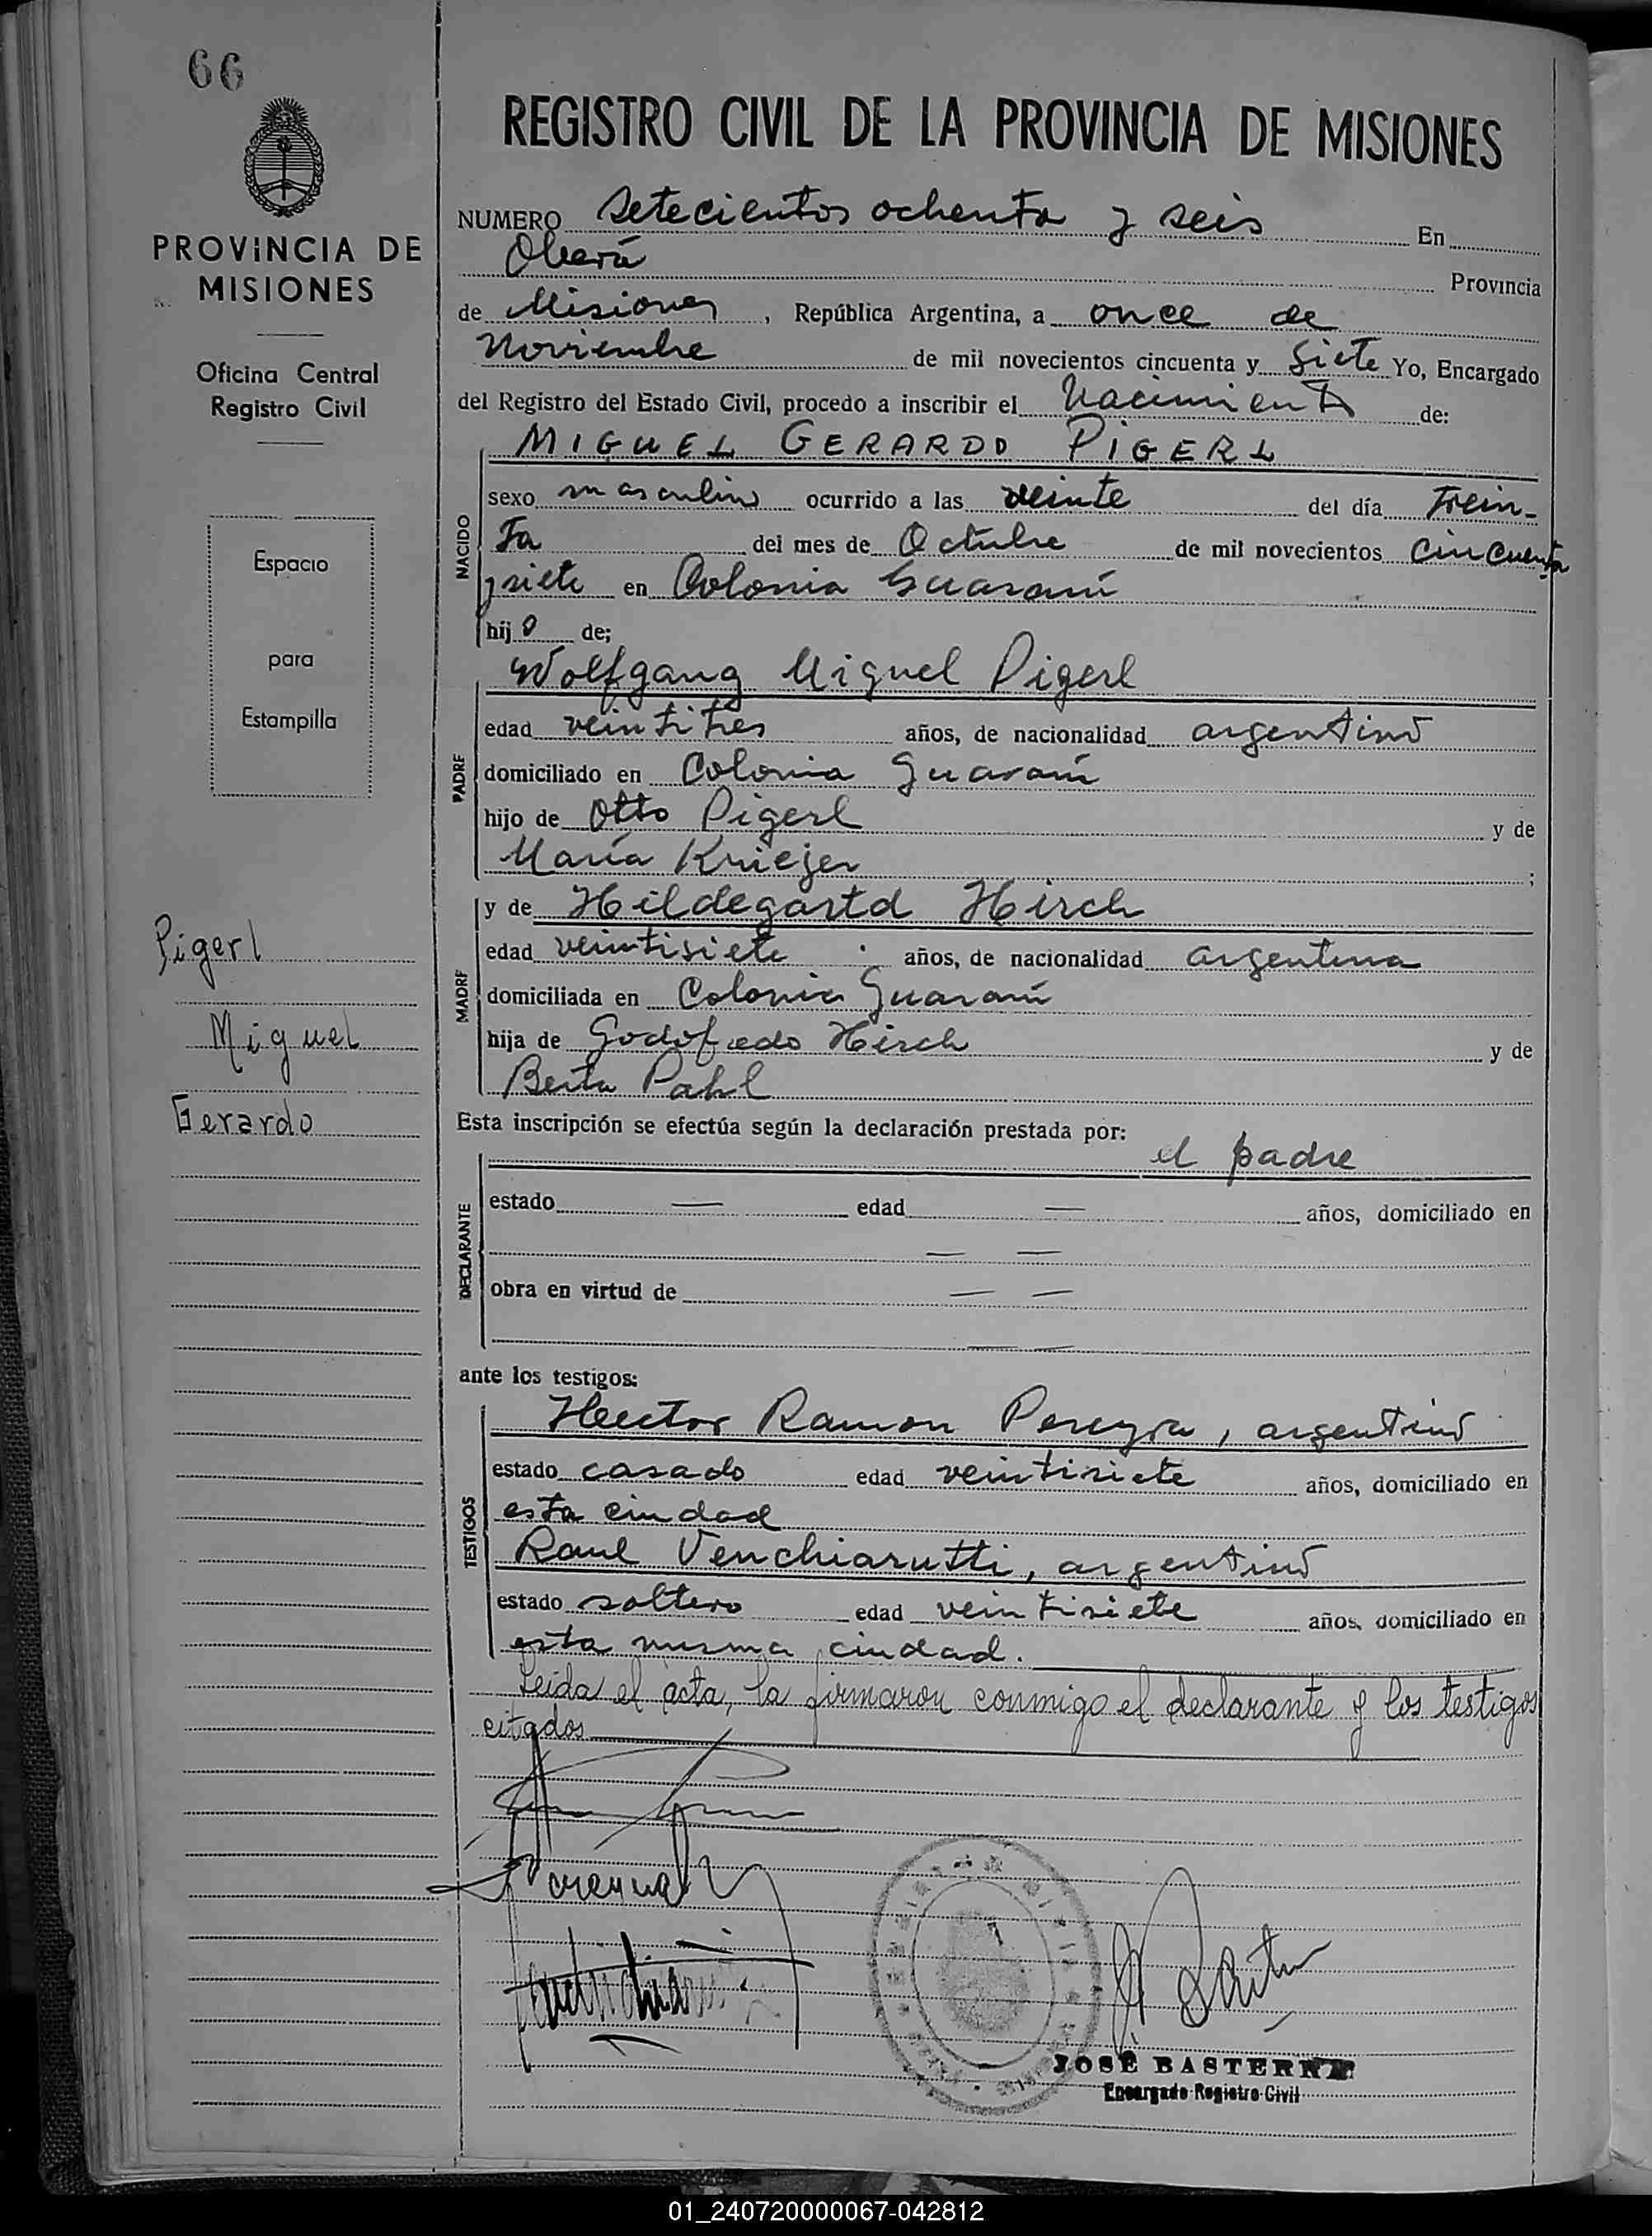 66
PROVINCIA DE
MISIONES
Oficina Central
Registro Civil
Espacio
para
Estampilla
Pigerl
Miguel
Gerardo
REGISTRO CIVIL DE LA PROVINCIA DE MISIONES
NUMERO setecientos ochenta y seis En
Oberá Provincia
de Misiones, República Argentina, a once de
Noviembre de mil novecientos cincuenta y siete Yo, Encargado
del Registro del Estado Civil, procedo a inscribir el Nacimiento de:
MIGUEL GERARDO PIGERL
NACIDO
sexo masculino ocurrido a las veinte del día trein-
ta del mes de Octubre de mil novecientos cincuenta
y siete en Colonia Guaraní
hijo de;
Wolfgang Miguel Pigerl
PADRE
edad veintitres años, de nacionalidad argentino
domiciliado en Colonia Guaraní
hijo de Otto Pigerl y de
María Krieger;
y de Hildegartd Hirch
MADRE
edad veintisiete años, de nacionalidad argentina
domiciliada en Colonia Guaraní
hija de Godofredo Hirch y de
Berta Pahl
Esta inscripción se efectúa según la declaración prestada por:
el padre
DECLARANTE
estado — edad — años, domiciliado en
— —
obra en virtud de — —
— —
ante los testigos:
Hector Ramon Pereyra, argentino
TESTIGOS
estado casado edad veintisiete años, domiciliado en
esta ciudad
Raul Venchiarutti, argentino
estado soltero edad veintisiete años, domiciliado en
esta misma ciudad.
Leida el acta, la firmaron conmigo el declarante y los testigos
citados
JOSÉ BASTERRA
Encargado Registro Civil
01_240720000067-042812